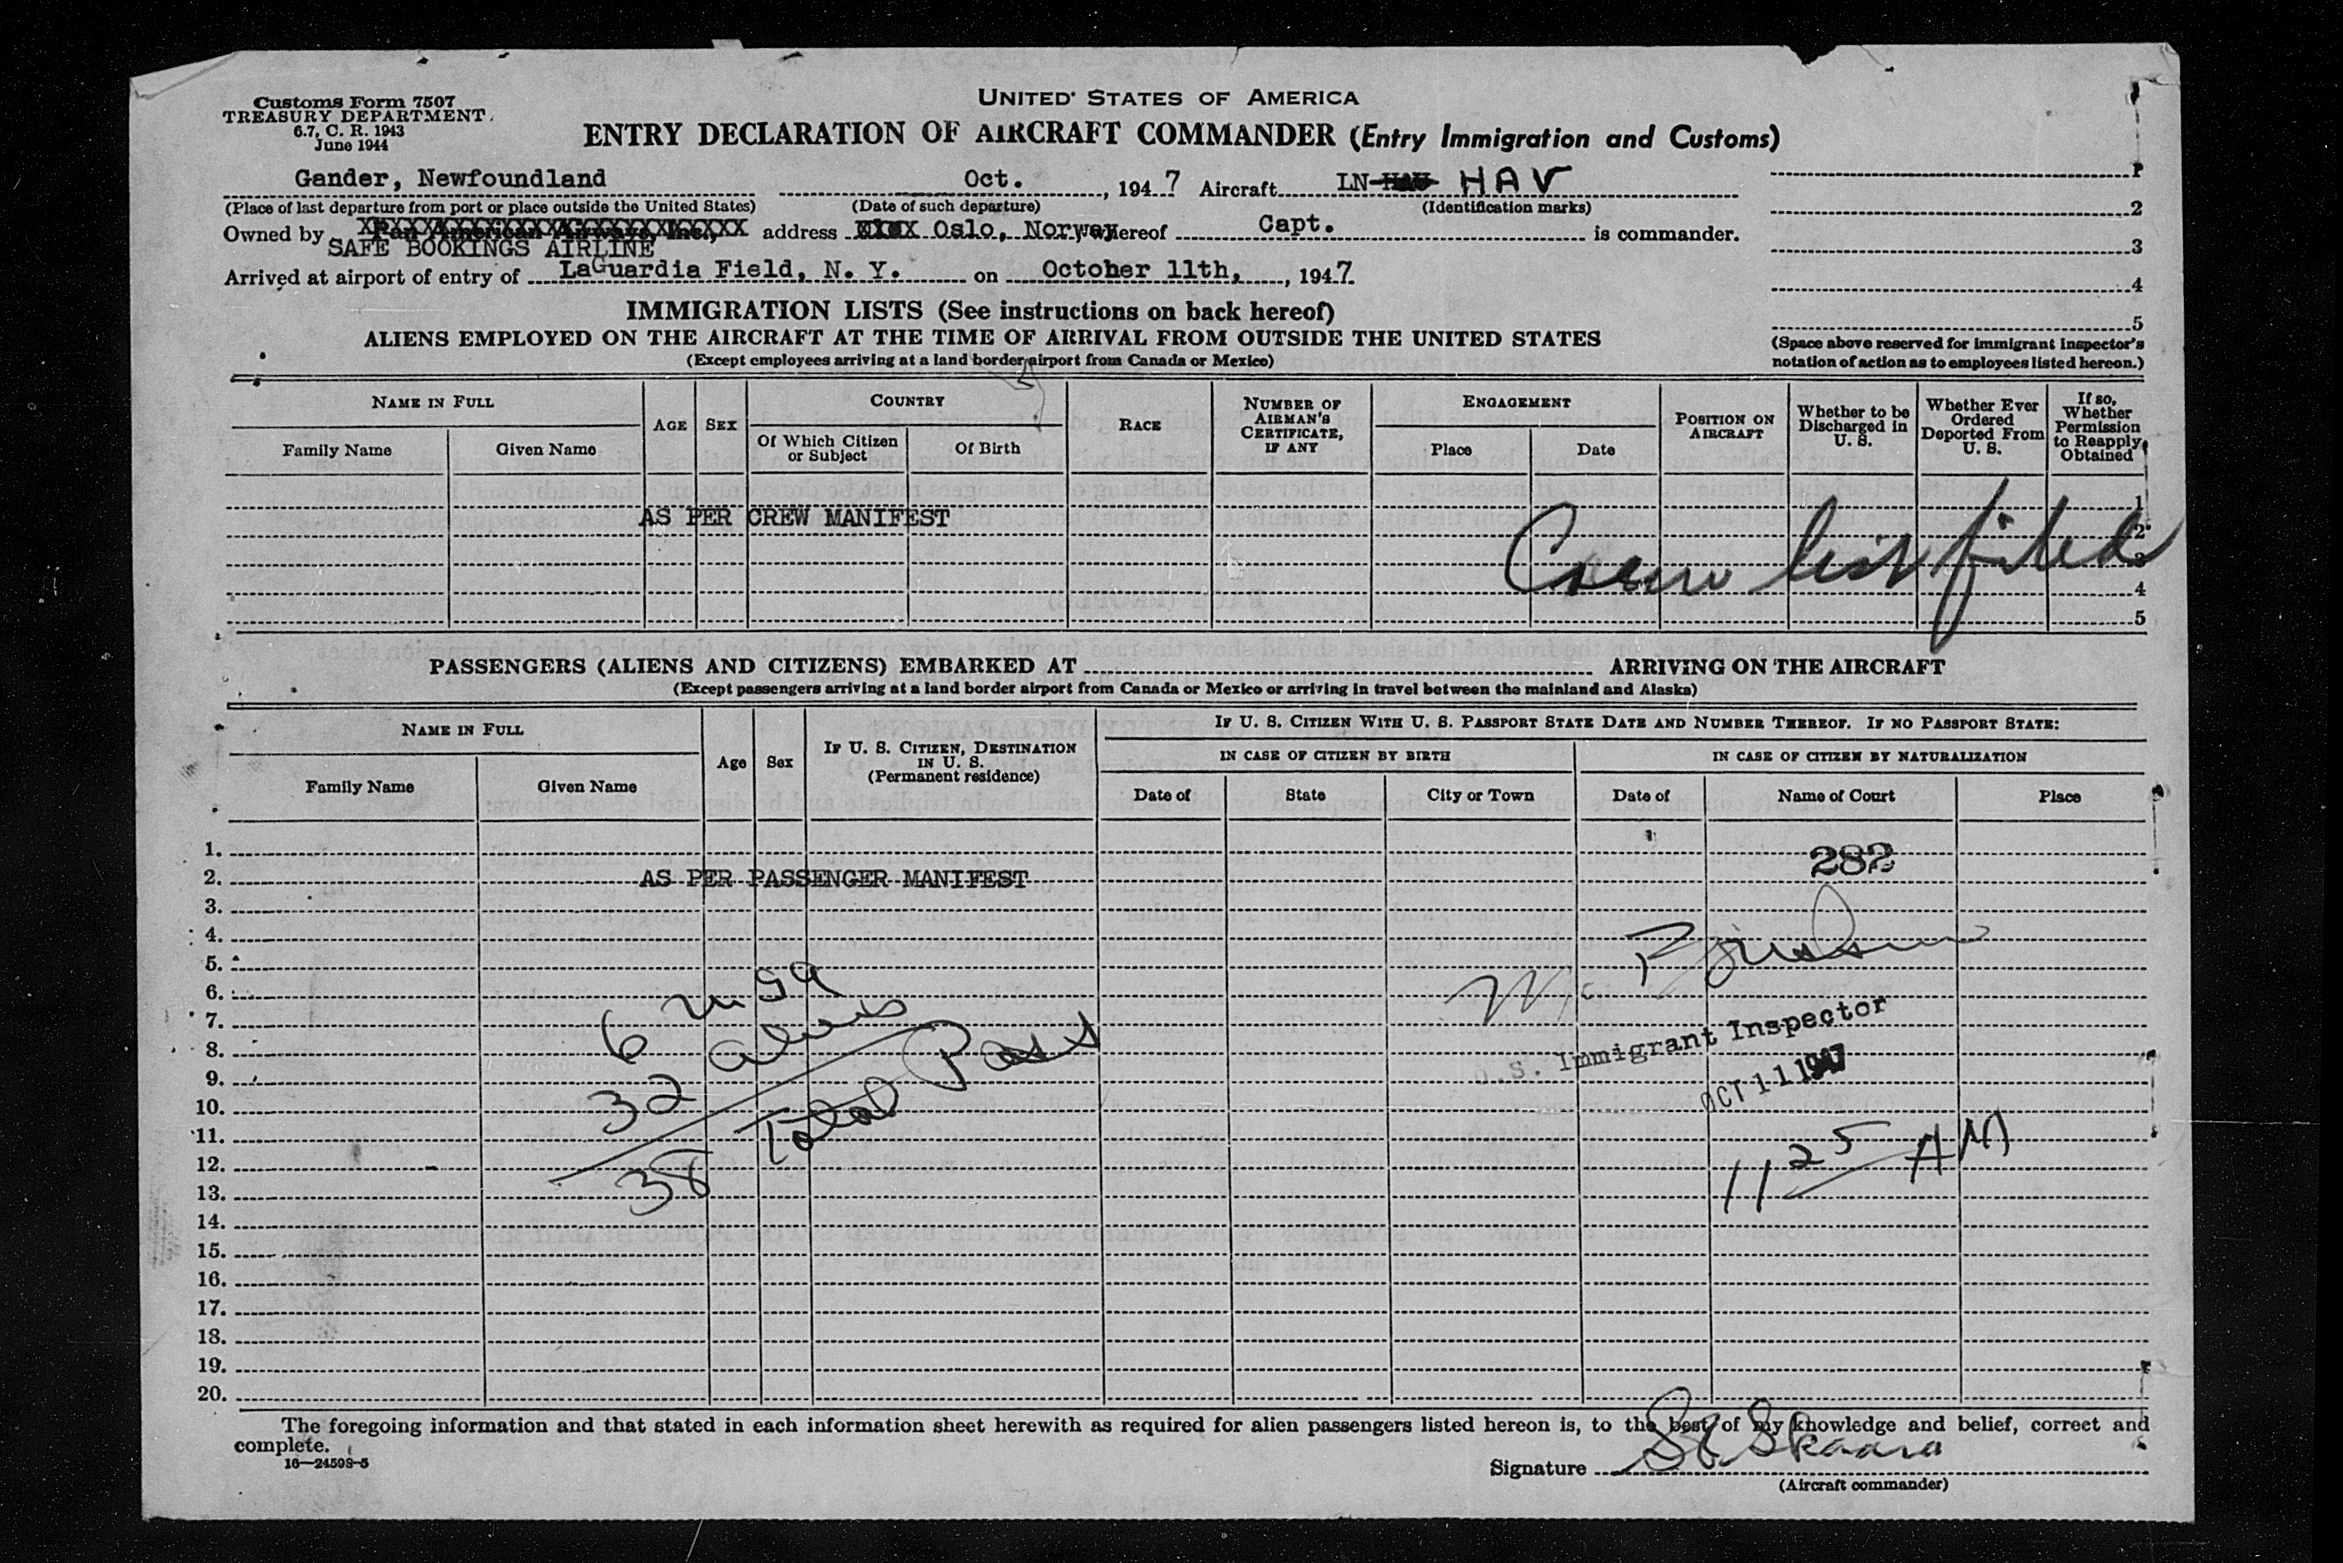 Customs Form 7507
TREASURY DEPARTMENT
6.7, C. R. 1943
June 1944
UNITED STATES OF AMERICA
ENTRY DECLARATION OF AIRCRAFT COMMANDER (Entry Immigration and Customs)
Gander, Newfoundland Oct. , 1947 Aircraft LN HAV
(Place of last departure from port or place outside the United States) (Date of such departure) (Identification marks)
Owned by Pan American Airways, Inc., address Oslo, Norway whereof Capt. is commander.
SAFE BOOKINGS AIRLINE
Arrived at airport of entry of LaGuardia Field, N. Y. on October 11th, , 1947
P
2
3
4
5
(Space above reserved for immigrant inspector's
notation of action as to employees listed hereon.)
IMMIGRATION LISTS (See instructions on back hereof)
ALIENS EMPLOYED ON THE AIRCRAFT AT THE TIME OF ARRIVAL FROM OUTSIDE THE UNITED STATES
(Except employees arriving at a land border airport from Canada or Mexico)
NAME IN FULL
Family Name Given Name
AGE
SEX
COUNTRY
Of Which Citizen or Subject
Of Birth
RACE
NUMBER OF AIRMAN'S CERTIFICATE, IF ANY
ENGAGEMENT
Place Date
POSITION ON AIRCRAFT
Whether to be Discharged in U. S.
Whether Ever Ordered Deported From U. S.
If so, Whether Permission to Reapply Obtained
1
AS PER CREW MANIFEST
2
3
4
5
Crew list filed
PASSENGERS (ALIENS AND CITIZENS) EMBARKED AT ARRIVING ON THE AIRCRAFT
(Except passengers arriving at a land border airport from Canada or Mexico or arriving in travel between the mainland and Alaska)
NAME IN FULL
Family Name Given Name
Age
Sex
IF U. S. CITIZEN, DESTINATION IN U. S.
(Permanent residence)
IF U. S. CITIZEN WITH U. S. PASSPORT STATE DATE AND NUMBER THEREOF. IF NO PASSPORT STATE:
IN CASE OF CITIZEN BY BIRTH
Date of State City or Town
IN CASE OF CITIZEN BY NATURALIZATION
Date of Name of Court Place
1.
282
2. AS PER PASSENGER MANIFEST
3.
4.
5.
6.
7.
8.
9.
10.
11.
12.
13.
14.
15.
16.
17.
18.
19.
20.
6
32 aliens
38 Total Pass
U.S. Immigrant Inspector
OCT 11 1947
11 25 AM
The foregoing information and that stated in each information sheet herewith as required for alien passengers listed hereon is, to the best of my knowledge and belief, correct and
complete.
16—24598-5
Signature Skaara
(Aircraft commander)